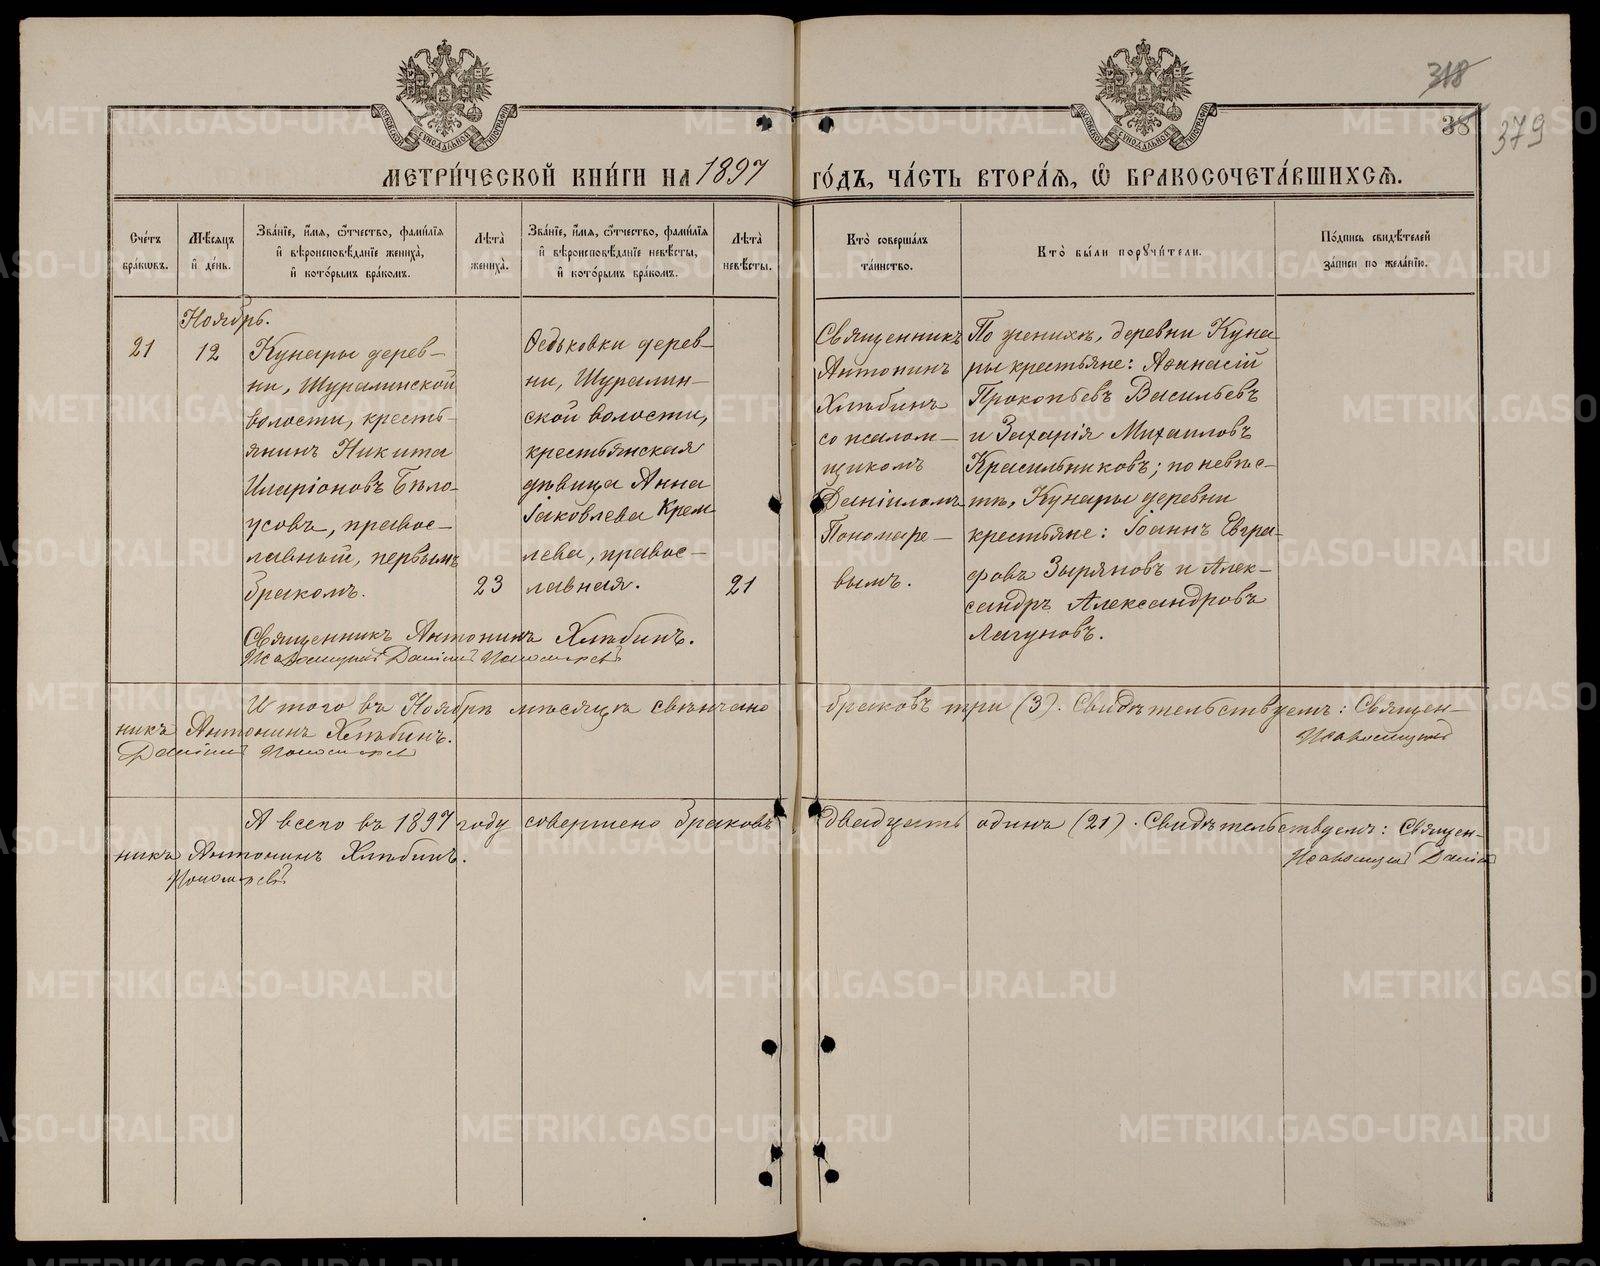 318
38
379
МОСКОВСКОЙ СИНОДАЛЬНОЙ ТИПОГРАФІИ
МОСКОВСКОЙ СИНОДАЛЬНОЙ ТИПОГРАФІИ
МЕТРИ́ЧЕСКОЙ КНИ́ГИ НА 1897 ГО́ДЪ, ЧА́СТЬ ВТОРА́Я, Ѡ БРАКОСОЧЕТА́ВШИХСѦ.
Сче́тъ
бра́кѡвъ.
Мѣ́сяцъ
и҆ де́нь.
Зва́нїе, и҆́мя, ѻ҆́тчество, фами́лїя
и҆ вѣроисповѣ́данїе жениха̀,
и҆ кото́рымъ бра́комъ.
Лѣ́та
жениха̀.
Зва́нїе, и҆́мя, ѻ҆́тчество, фами́лїя
и҆ вѣроисповѣ́данїе невѣ́сты,
и҆ кото́рымъ бра́комъ.
Лѣ́та
невѣ́сты.
Кто̀ соверша́лъ
та́инство.
Кто̀ бы́ли порꙋчи́тели.
По́дпись свидѣ́телей
за́писи по жела́нїю.
Ноябрь.
21
12
Кунары дерев-
ни, Шуралинской
волости, кресть-
янинъ Никита
Иларіоновъ Бѣло-
усовъ, правос-
лавный, первымъ
бракомъ.
23
Федьковки дерев-
ни, Шуралин-
ской волости,
крестьянская
дѣвица Анна
Іаковлева Крем-
лева, правос-
лавная.
21
Священникъ Антонинъ Хлѣбинъ.
Псаломщикъ Даніилъ Пономаревъ
Священникъ
Антонинъ
Хлѣбинъ
со псалом-
щикомъ
Даніиломъ
Пономаре-
вымъ.
По женихѣ, деревни Куна-
ры крестьяне: Аѳанасій
Прокопьевъ Васильевъ
и Захарія Михаиловъ
Красильниковъ; по невѣс-
тѣ, Кунары деревни
крестьяне: Іоаннъ Евгра-
фовъ Зыряновъ и Алек-
сандръ Александровъ
Лагуновъ.
Итого въ Ноябрѣ мѣсяцѣ свѣнчано браковъ три (3). Свидѣтельствуемъ: Священ-
никъ Антонинъ Хлѣбинъ. Псаломщикъ
Даніилъ Пономаревъ
А всего въ 1897 году совершено браковъ двадцать одинъ (21). Свидѣтельствуемъ: Священ-
никъ Антонинъ Хлѣбинъ. Псаломщикъ Даніилъ
Пономаревъ
METRIKI.GASO-URAL.RU